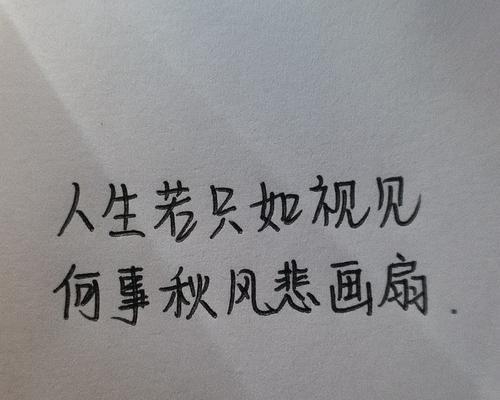 人生若只如视见
何事秋风悲画扇.